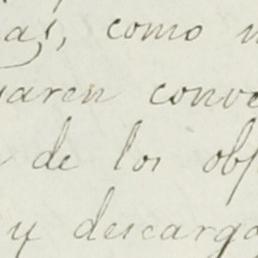 as, como
garen conve
de los obj
y descarga